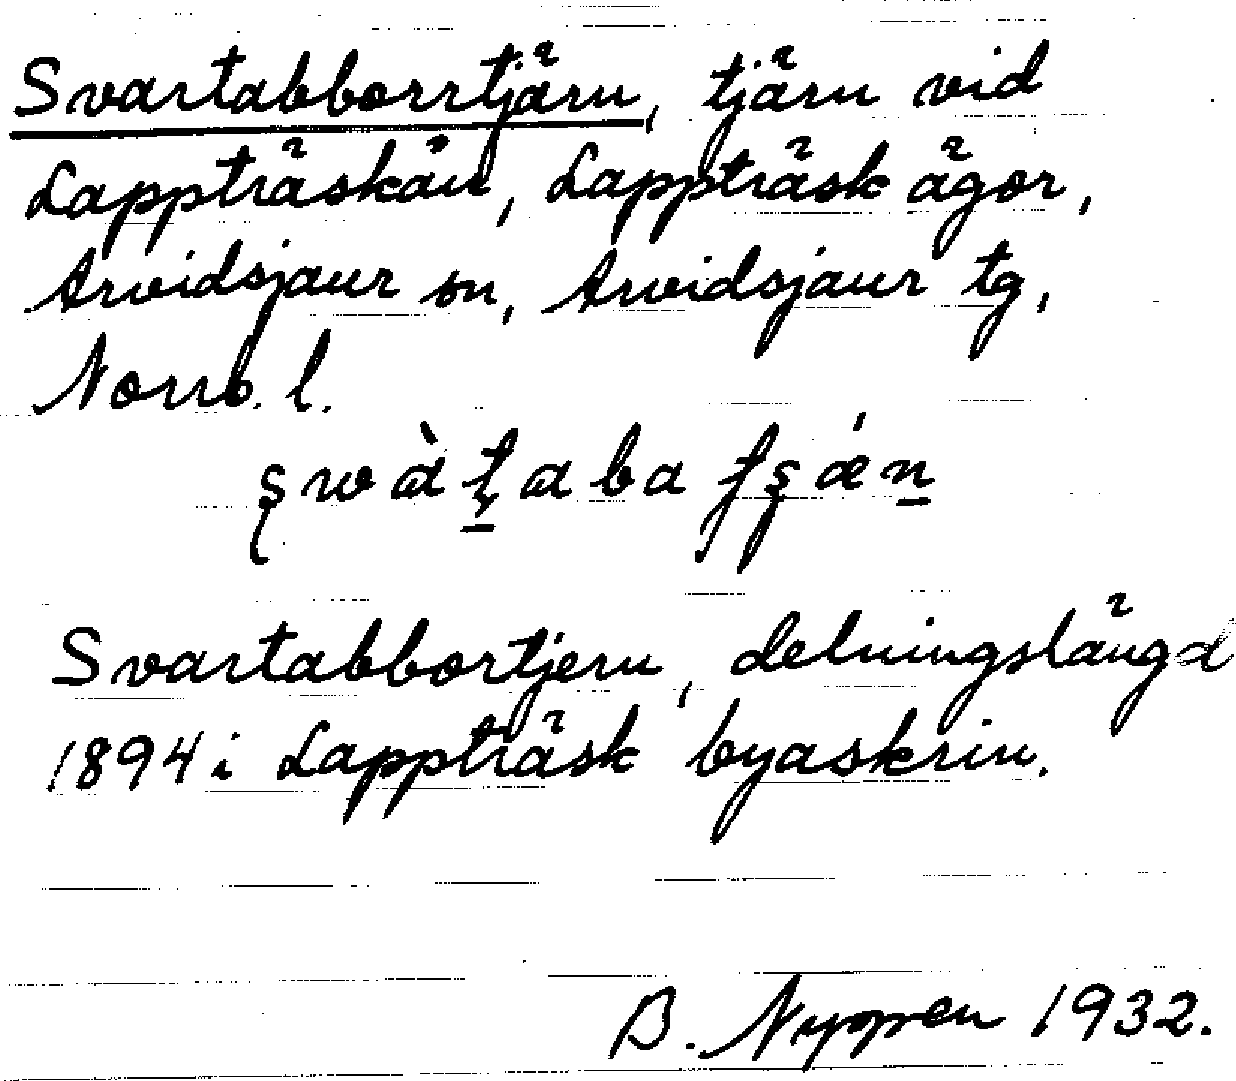 Svartabborrtjärn, tjärn vid
Lappträskån, Lappträsk ägor,
Arvidsjaur sn, Arvidsjaur tg,
Norrb. l.
Svartabbortjern, delningslängd
1894 i Lappträsk byaskrin.
B. Nyppen 1932.